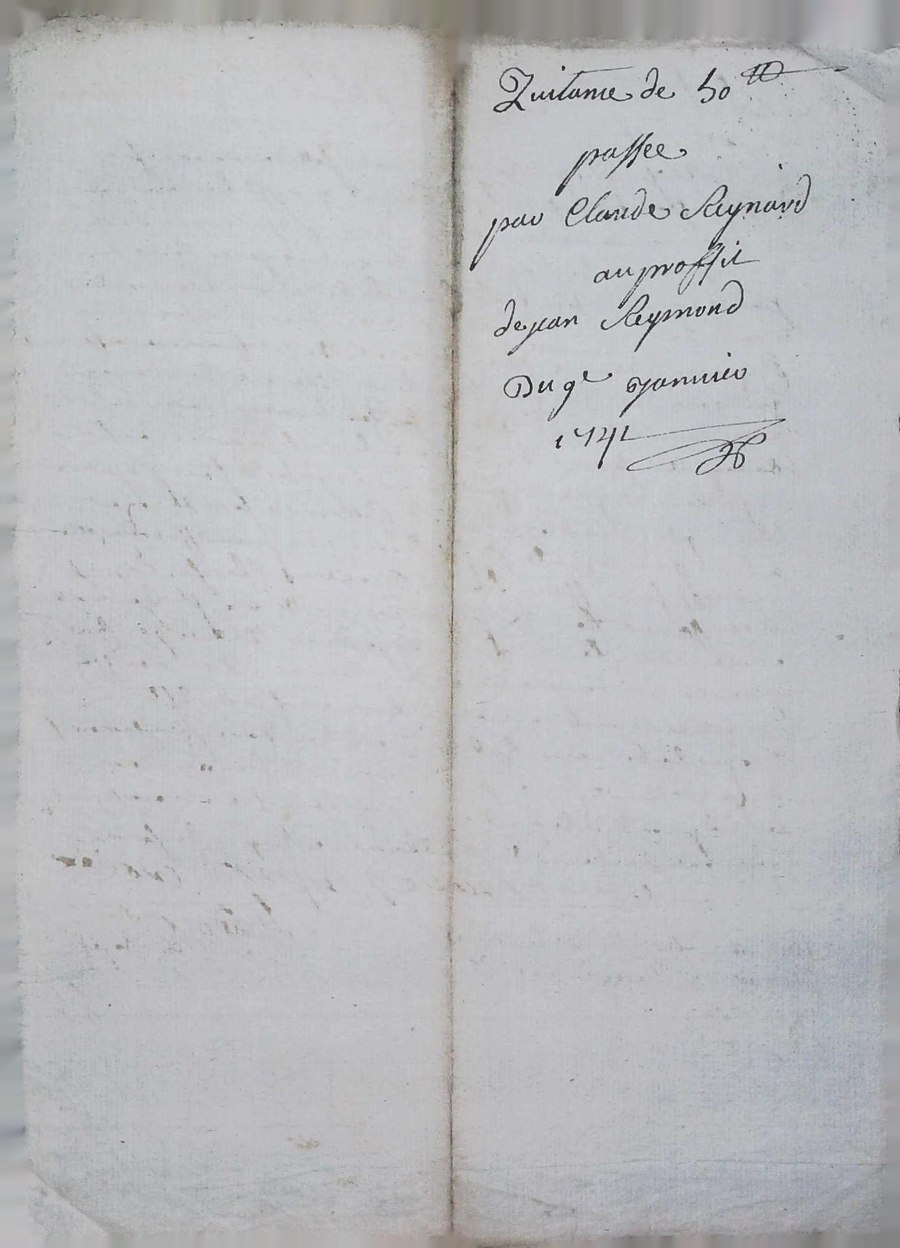 Quitance de 50 ₶
passée
par Claude Reynard
au proffit
de jean Reymond
Du 9e Janvier
1741